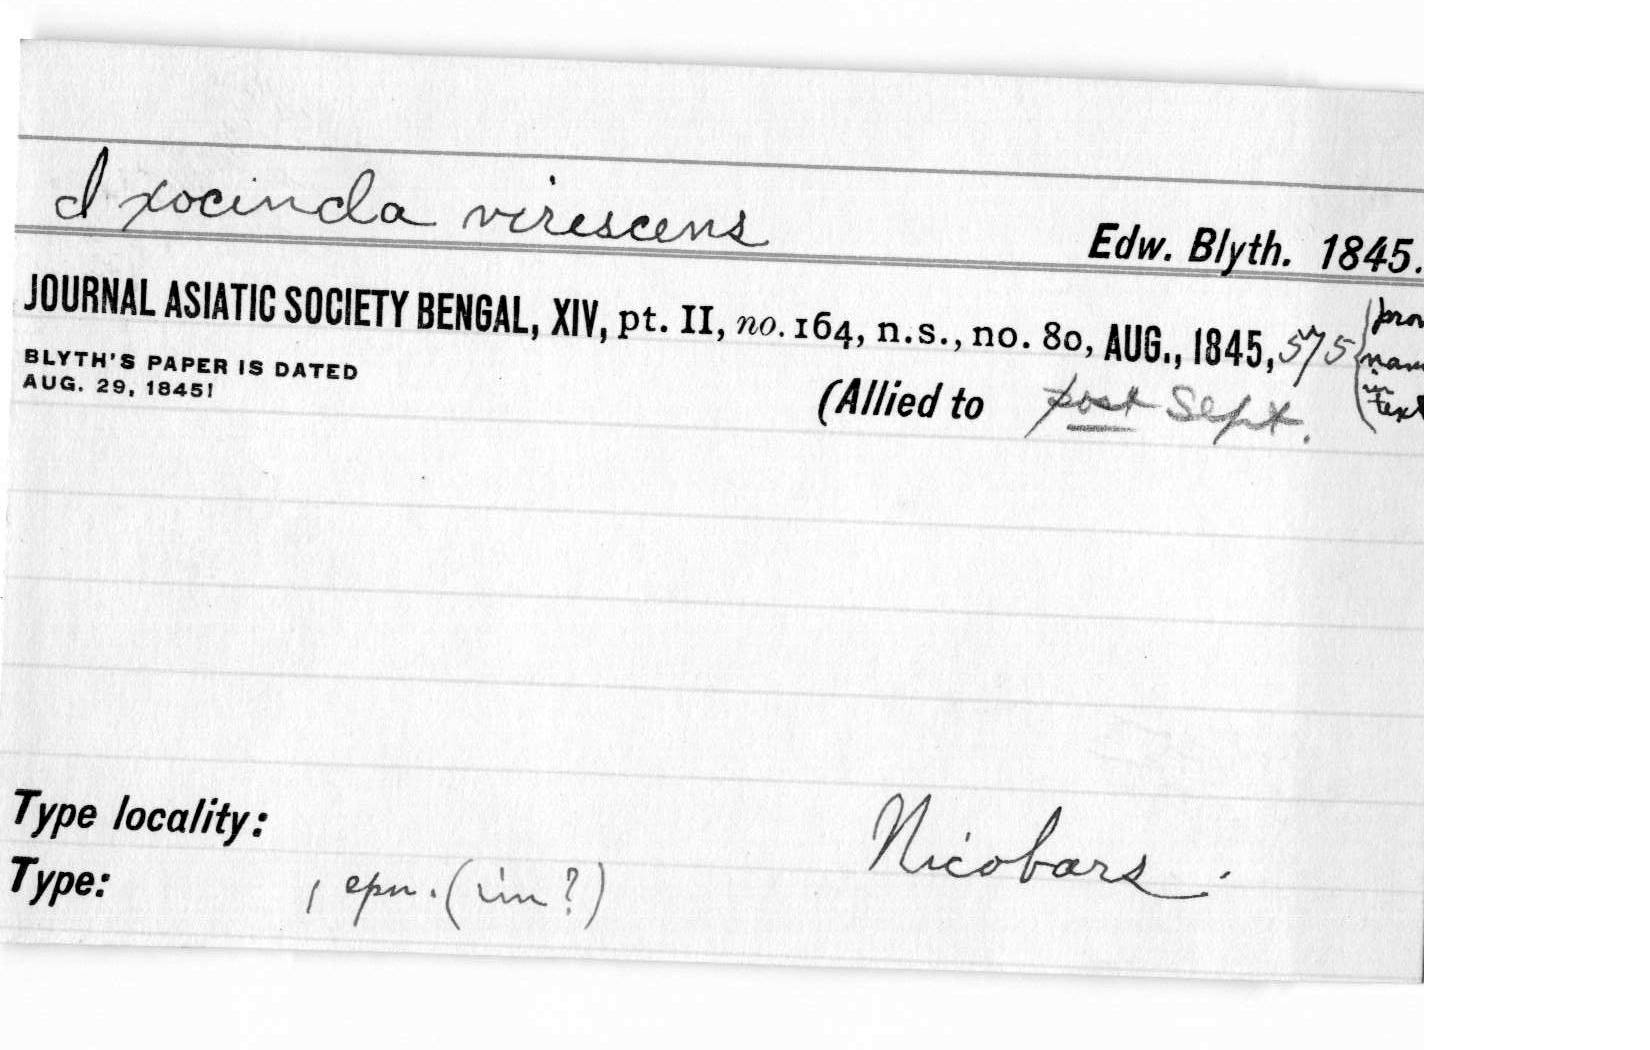 Ixocincla virescens
Edw. Blyth. 1845.
JOURNAL ASIATIC SOCIETY BENGAL, XIV, pt. II, no. 164, n.s., no. 80, AUG., 1845, 575
(prov
nam
in
text
BLYTH'S PAPER IS DATED
AUG. 29, 1845!
(Allied to post Sept.
Type locality: Nicobars.
Type: 1 (im?)